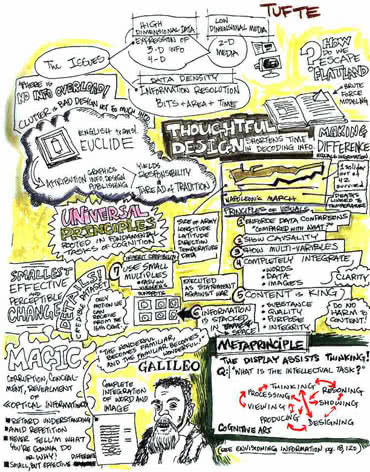 TUFTE
THE ISSUES
HIGH
DIMENSIONAL DATA
LOW
DIMENSIONAL MEDIA
EXPRESSION OF
3-D INFO
4-D
2-D
MEDIA
DATA DENSITY
INFORMATION RESOLUTION
BITS ÷ AREA + TIME
? HOW
DO WE
ESCAPE
FLATLAND
BRUTE
FORCE
MODELING
"THERE IS
NO INFO OVERLOAD!
CLUTTER IS BAD DESIGN NOT TOO MUCH INFO
ENGLISH TRANSL.
EUCLIDE
GRAPHICS
INFO. DESIGN
PUBLISHING
ATTRIBUTION
YIELDS
RESPONSIBILITY
THREAD & TRADITION
THOUGHTFUL
DESIGN
SHORTENS TIME
IN DECODING INFO.
MAKING
DIFFERENCE
NAPOLEONIC MARCH
LINKED TO
TEMPERATURE
UNIVERSAL
PRINCIPLES
ROOTED IN FUNDAMENTAL
TASKS OF COGNITION
SIZE OF ARMY
LONGITUDE
LATITUDE
DIRECTION
TEMPERATURE
DATA
PRINCIPLES OF VISUALS
1 ENFORCE DATA COMPARISONS
"COMPARED WITH WHAT?"
2 SHOW CAUSALITY
3 SHOW MULTI-VARIABLES
4 COMPLETELY INTEGRATE
WORDS
DATA
IMAGES
CLARITY
5 CONTENT IS KING
SUBSTANCE
QUALITY
PURPOSE
INTEGRITY
DO NO
HARM TO
CONTENT!
SMALLEST
EFFECTIVE
OR
PERCEPTIBLE
CHANGE
DETAILS!
USE SMALL
MULTIPLES
EXECUTED
AS STATEMENT
AGAINST WAR
INFORMATION
IS STACKED
IN SPACE
MAGIC
CORRUPTION, CONCEAL-
MENT, REVEALMENT OF
OPTICAL INFORMATION
RETARD UNDERSTANDING
AND REPETITION
NEVER TELL'M WHAT
YOU'RE GONNA DO
OR WHY!
SMALL, BUT EFFECTIVE DIFFERENCE
"THE WONDERFUL
BECOMES FAMILIAR
AND THE FAMILIAR BECOMES WONDERFUL"
GALILEO
COMPLETE
INTEGRATION
OF WORD AND
IMAGE
METAPRINCIPLE
THE DISPLAY ASSISTS THINKING!
Q: "WHAT IS THE INTELLECTUAL TASK?"
THINKING
PROCESSING
REASONING
VIEWING
SHOWING
PRODUCING
DESIGNING
COGNITIVE ART
SEE ENVISIONING INFORMATION